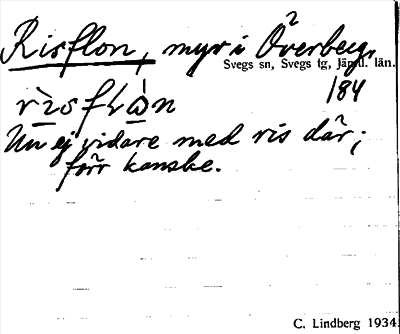 Risflon, myr i Överberg,
Svegs sn, Svegs tg, Jämtl. län.
184
Nu ej vidare med ris där;
förr kanske.
C. Lindberg 1934